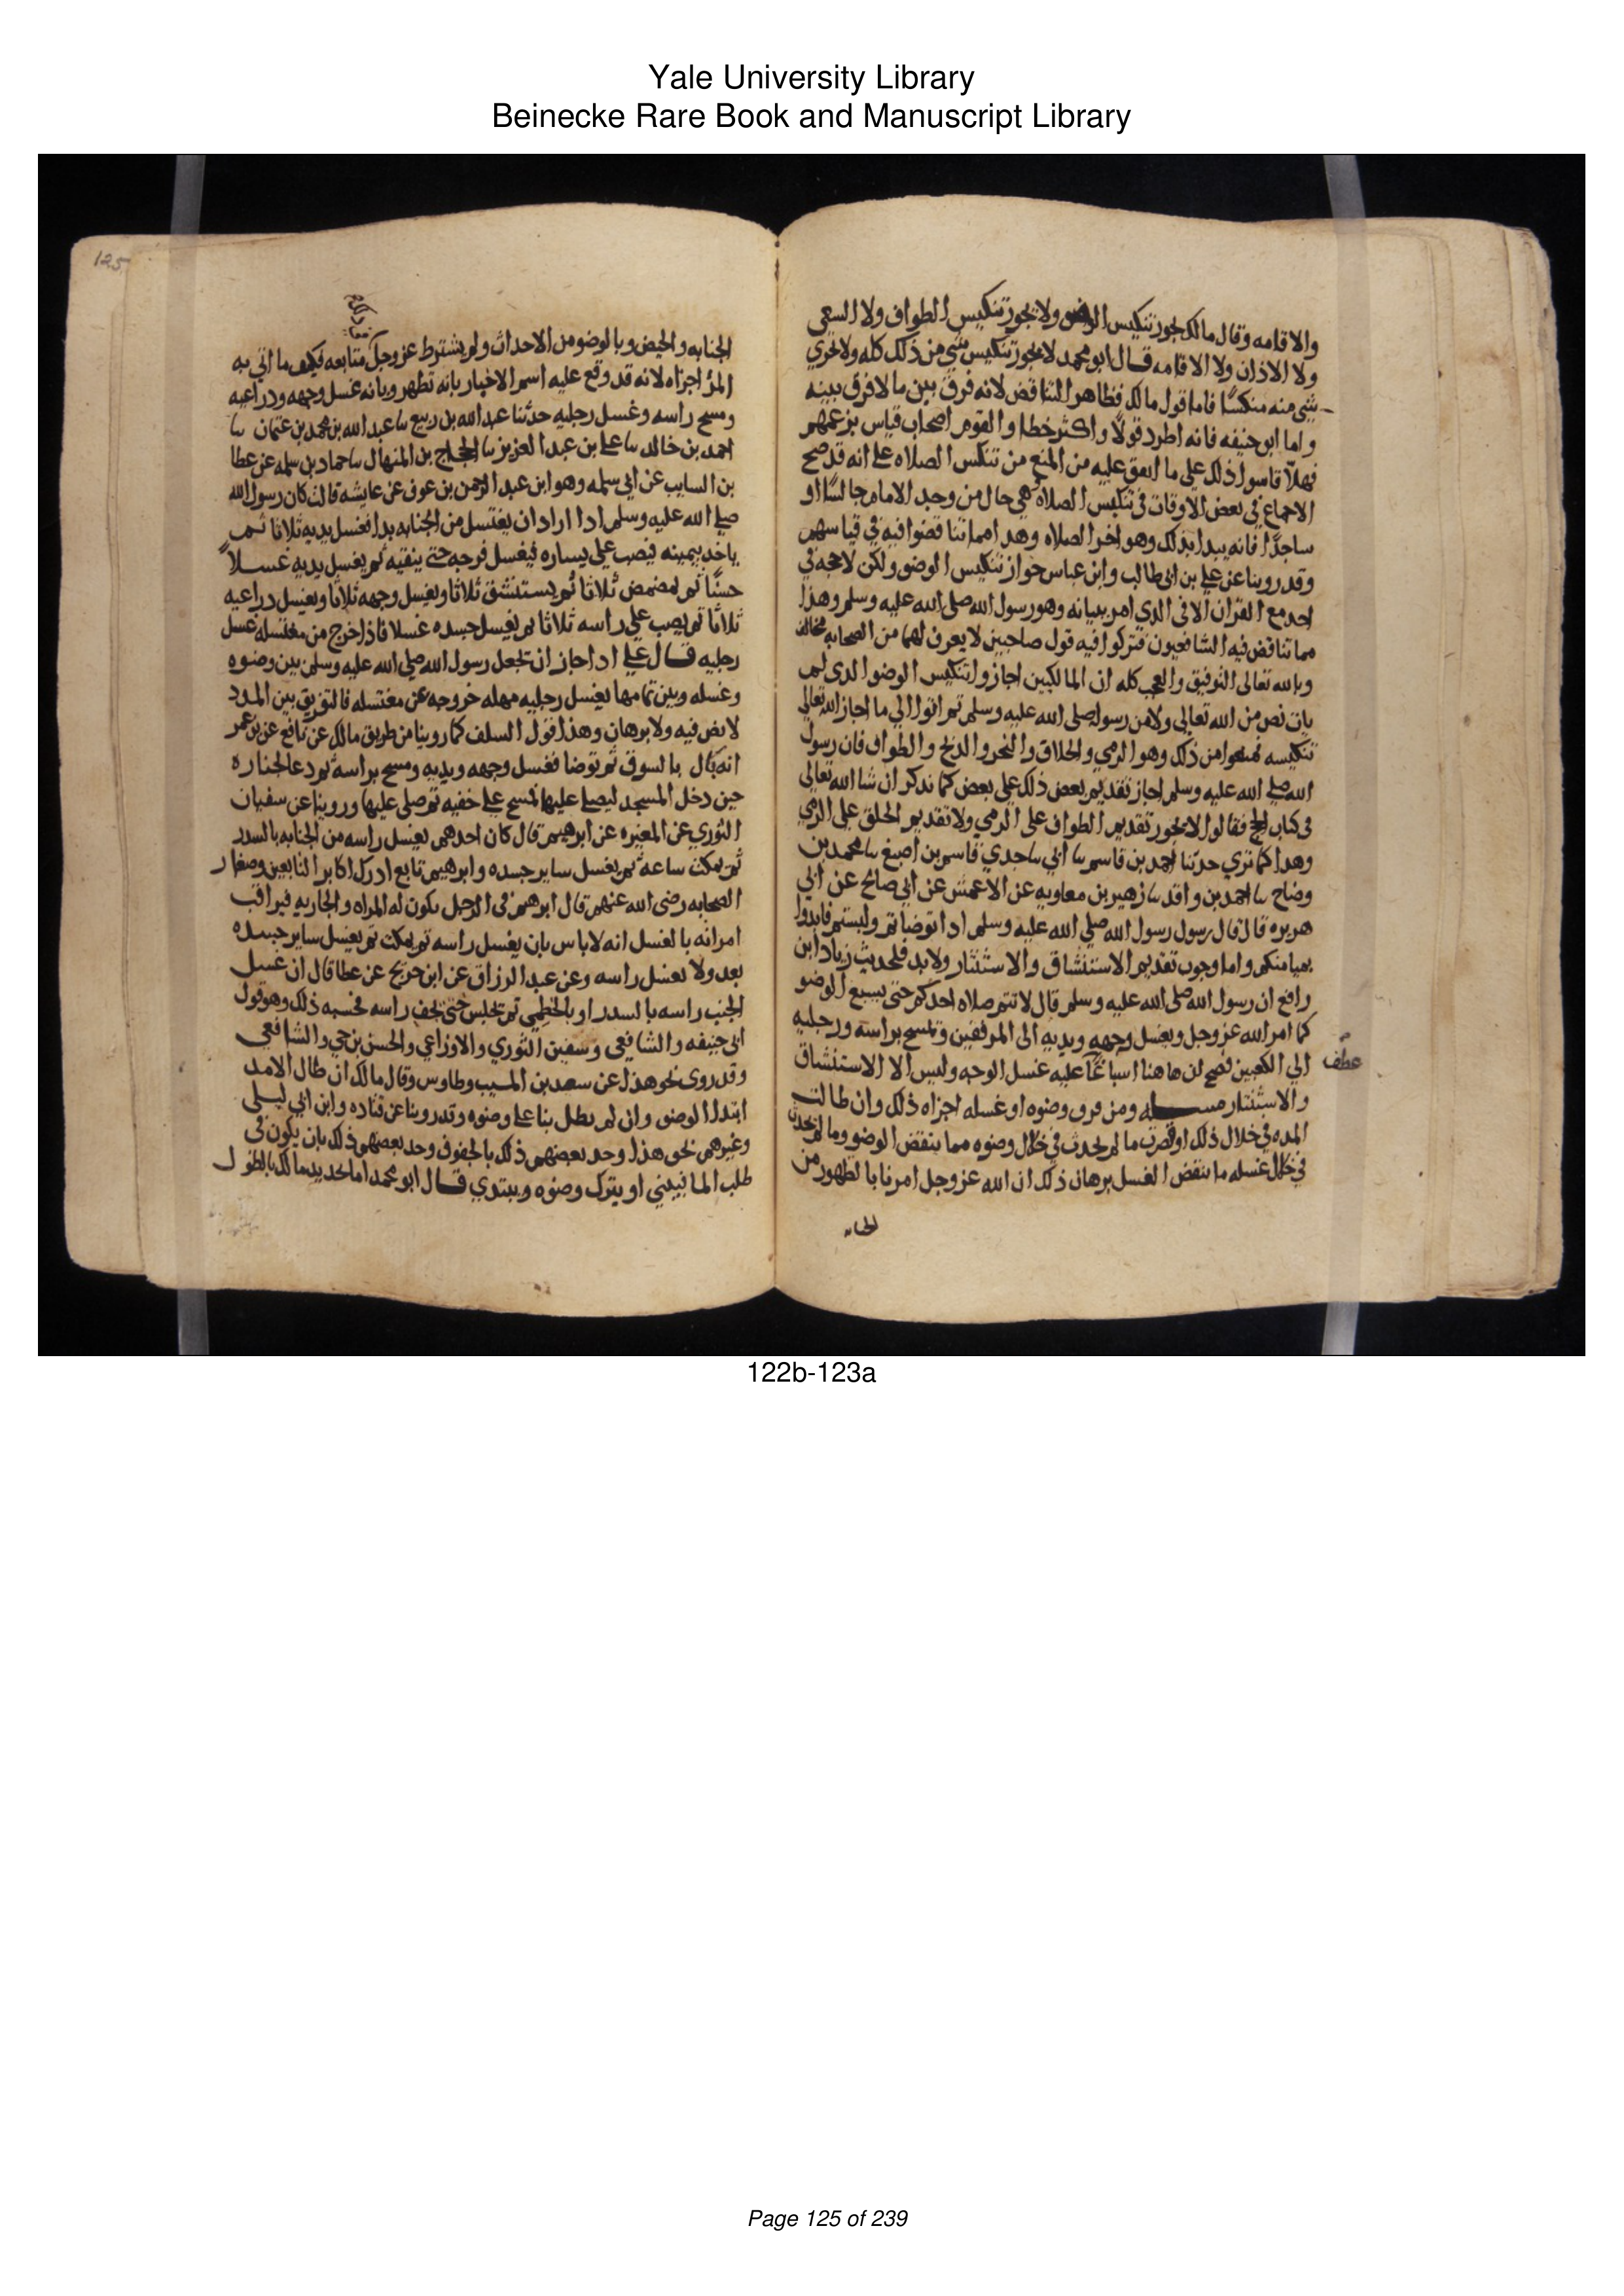 Yale University Library
Beinecke Rare Book and Manuscript Library
والاقامه وقال مالك يجوز تنكيس الوضو ولا يجوز تنكيس الطواف ولا السعي
ولا الاذان ولا الاقامه قال ابو محمد لا يجوز تنكيس شي من ذلك كله ولا يجزي
شي منه منكسًا فاما قول مالك فظاهر التناقض لانه فرق بين ما لا فرق بينه
واما ابو حنيفه فانه اطرد قولًا واكثر خطا والقوم اصحاب قياس بزعمهم
فهلّا قاسوا ذلك على ما اتفق عليه من المنع من تنكيس الصلاه على انه قد صح
الاجماع في بعض الاوقات في تنكيس الصلاه وهي حال من وجد الامام جالسًا او
ساجدًا فانه يبدا بذلك وهو اخر الصلاه وهدا مما تناقضوا فيه في قياسهم
وقد روينا عن علي بن ابي طالب وابن عباس جواز تنكيس الوضو ولكن لا حجه في
احد مع القران الا في الدي امر ببيانه وهو رسول الله صلى الله عليه وسلم وهذا
مما تناقض فيه الشافعيون فتركوا فيه قول صاحبين لا يعرف لهما من الصحابه مخالف
وبالله تعالى التوفيق والعجب كله ان المالكيين اجازوا تنكيس الوضو الدي لم
يات نص من الله تعالى ولا من رسوله صلى الله عليه وسلم ثم اتوا الي ما اجاز الله تعالي
تنكيسه فمنعوا من ذلك وهو الرمي والحلاق والنحر والذبح والطواف فان رسول
الله صلي الله عليه وسلم اجاز تقديم بعض ذلك على بعض كما ندكر ان شا الله تعالى
في كتاب الحج فقالوا لا يجوز تقديم الطواف على الرمي ولا تقديم الحلق على الرمي
وهدا كما تري حدثنا احمد بن قاسم سا ابي سا جدي قاسم بن اصبغ سا محمد بن
وضاح سا احمد بن واقد سا زهير بن معاويه عن الاعمش عن ابي صالح عن ابي
هريره قال قال رسول رسول الله صلي الله عليه وسلم ادا توضاتم ولبستم فابدوا
بميامنكم واما وجوب تقديم الاستنشاق والاستنثار ولا بد فلحديث زياد ابن
رافع ان رسول الله صلى الله عليه وسلم قال لا تتم صلاه احدكم حتى يسبغ الوضو
كما امر الله عز وجل ويغسل وجهه ويديه الى المرفقين وتمسح براسه ورجليه
عطف
الي الكعبين فصح ان هاهنا اسباغًا عليه غسل الوجه وليس الا الاستنشاق
والاستنثار مسله ومن فرق وضوه او غسله اجزاه ذلك وان طالت
المده في خلال ذلك او قصرت ما لم يحدث في خلال وضوه مما ينقض الوضو وما لم يحدث
في خلال غسله ما ينقض الغسل برهان ذلك ان الله عز وجل امرنا بالطهور من
125
الجنابه والحيض وبالوضو من الاحداث ولم يشترط عز وجل متابعه فكيف ما اتي به
المرُ اجزاه لانه قد وقع عليه اسم الاخبار بانه تطهر وبانه غسل وجهه ودراعيه
ومسح راسه وغسل رجليه حدثنا عبد الله بن ربيع سا عبد الله بن محمد بن عثمان سا
احمد بن خالد سا علي بن عبد العزيز سا الحجاج بن المنهال سا حماد بن سلمه عن عطا
بن السايب عن ابي سلمه وهو ابن عبد الرحمن بن عوف عن عايشه قالت كان رسول الله
صلي الله عليه وسلم ادا اراد ان يغتسل من الجنابه بدا فغسل يديه ثلاثا ثم
ياخد بيمينه فيصب على يساره فيغسل فرجه حتى ينقيه ثم يغسل يديه غسلاً
حسنًا ثم يمضمض ثلاثا ثم يستنشق ثلاثا ويغسل وجهه ثلاثا ويغسل دراعيه
ثلاثا ثم يصب علي راسه ثلاثا ثم يغسل جسده غسلا فاذا خرج من مغتسله غسل
رجليه قال علي ادا جاز ان تجعل رسول الله صلى الله عليه وسلم بين وضوه
وغسله وبين تمامهما بغسل رجليه مهله خروجه عن مغتسله فالتفريق بين المدد
لا نص فيه ولا برهان وهذا قول السلف كما روينا من طريق مالك عن نافع عن بن عمر
انه بال بالسوق ثم توضا فغسل وجهه ويديه ومسح براسه ثم دعا لجنازه
حين دخل المسجد ليصلي عليها فمسح علي خفيه ثم صلى عليها وروينا عن سفيان
الثوري عن المغيره عن ابرهيم قال كان احدهم يغسل راسه من الجنابه بالسدر
ثم يمكث ساعه ثم يغسل ساير جسده وابرهيم تابع ادرك اكابر التابعين وصغار
الصحابه رضى الله عنهم قال ابرهيم في الرجل يكون له المراه والجاريه فيراقب
امراته بالغسل انه لا باس بان يغسل راسه ثم يمكث ثم يغسل ساير جسده
بعد ولا يغسل راسه وعن عبد الرزاق عن ابن جريج عن عطا قال ان غسل
الجنب راسه بالسدر او بالخطمي ثم تجلس حتى يجف راسه فحسبه ذلك وهو قول
ابي حنيفه والشافعي وسفين الثوري والاوزاعي والحسن بن حي والشافعي
وقد روى نحو هذا عن سعيد بن المسيب وطاوس وقال مالك ان طال الامد
ابتدا الوضو وان لم يطل بنا على وضوه وقد روينا عن قتاده وابن ابي ليلى
وغيرهم نحو هذا وحد بعضهم ذلك بالجفوف وحد بعضهم ذلك بان يكون في
طلب الما فيبني او يترك وضوه ويبتدي قال ابو محمد اما تحديد مالك بالطول
122b-123a
Page 125 of 239